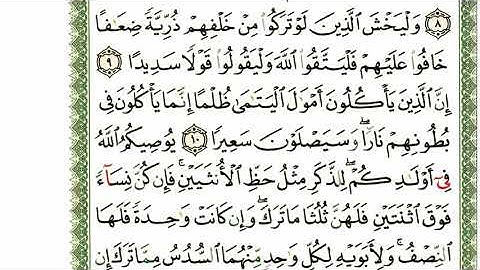 ٨ وَلْيَخْشَ ٱلَّذِينَ لَوْ تَرَكُوا۟ مِنْ خَلْفِهِمْ ذُرِّيَّةً ضِعَٰفًا
خَافُوا۟ عَلَيْهِمْ فَلْيَتَّقُوا۟ ٱللَّهَ وَلْيَقُولُوا۟ قَوْلًا سَدِيدًا ٩
إِنَّ ٱلَّذِينَ يَأْكُلُونَ أَمْوَٰلَ ٱلْيَتَٰمَىٰ ظُلْمًا إِنَّمَا يَأْكُلُونَ فِى
بُطُونِهِمْ نَارًا ۖ وَسَيَصْلَوْنَ سَعِيرًا ١٠ يُوصِيكُمُ ٱللَّهُ
فِىٓ أَوْلَٰدِكُمْ ۖ لِلذَّكَرِ مِثْلُ حَظِّ ٱلْأُنثَيَيْنِ ۚ فَإِن كُنَّ نِسَآءً
فَوْقَ ٱثْنَتَيْنِ فَلَهُنَّ ثُلُثَا مَا تَرَكَ ۖ وَإِن كَانَتْ وَٰحِدَةً فَلَهَا
ٱلنِّصْفُ ۚ وَلِأَبَوَيْهِ لِكُلِّ وَٰحِدٍ مِّنْهُمَا ٱلسُّدُسُ مِمَّا تَرَكَ إِن